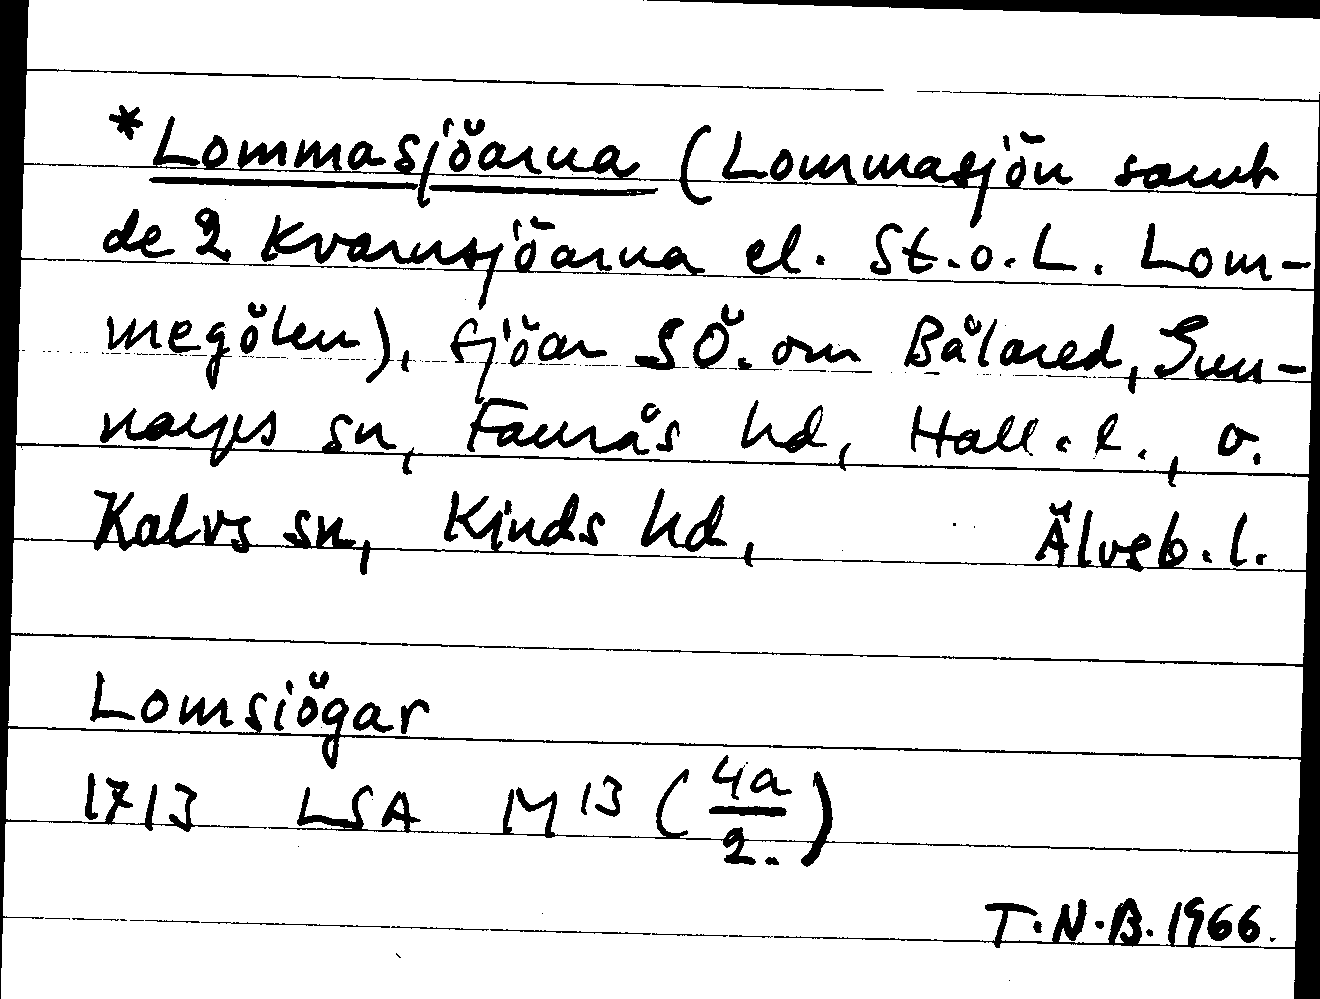 *Lommasjöarna (Lommasjön samt
de 2 Kvarnsjöarna el. St. o. L. Lom-
megölen), sjöar SÖ. om Bålared, Gun-
narps sn, Faurås hd, Hall. l., o.
Kalvs sn, Kinds hd, Älvsb. l.
Lomsiögar
1713 LSA M 13 (4a/2.)
T.N.B. 1966.